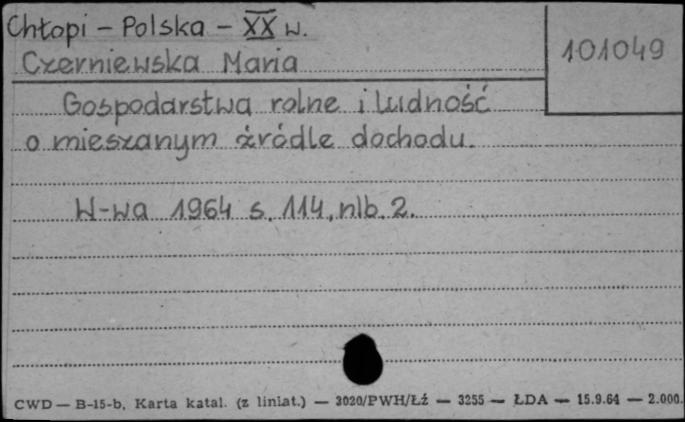 Chłopi - Polska - XX w.
101049
Czerniewska Maria
Gospodarstwa rolne i ludność
o mieszanym źródle dochodu.
W-wa 1964 s. 114, nlb. 2.
CWD — B-15-b, Karta katal. (z liniat.) — 3020/PWH/Łź — 3255 — ŁDA — 15.9.64 — 2.000.